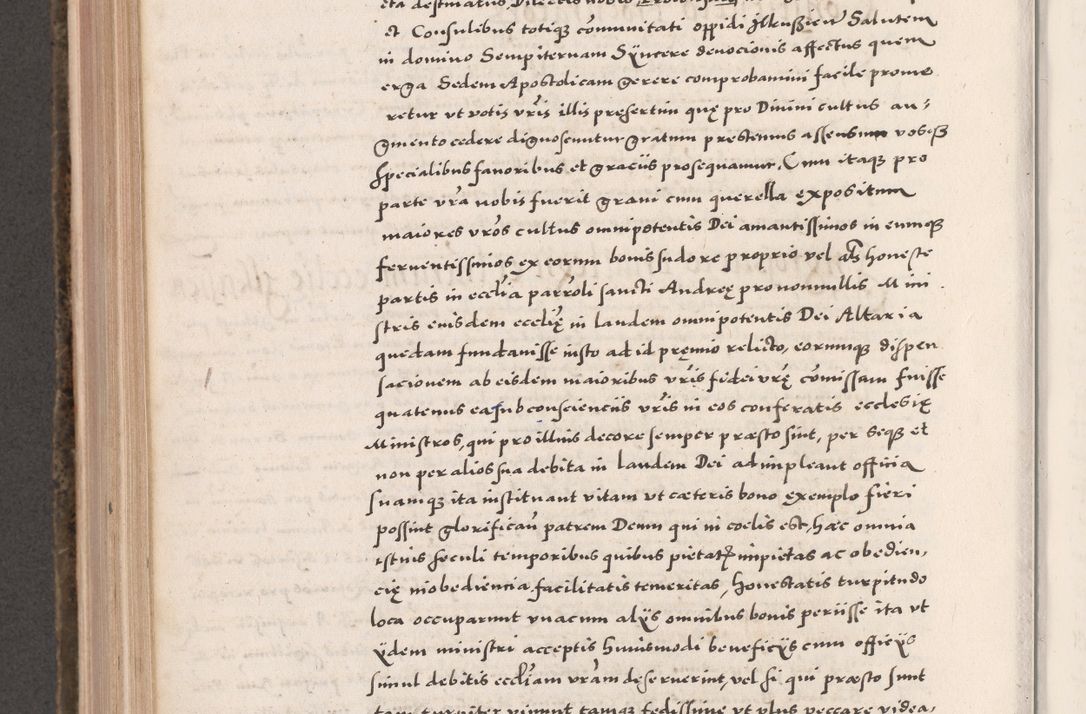 et Consulibus totiq3 co͞munitati oppidi Jlkußien Salutem
in domino Sempiternam Sÿncere devocionis affectus quem
erga Sedem Apostolicam gerere comprobamini facile prome
retur ut votis vr͞is illis presertim quę pro Divini cultus au⸗
gmento cedere dignoscuntur gratum prestemus assensum vosq3
specialibus favoribus et gracijs prosequamur, Cum itaq3 pro
parte vr͞a nobis fuerit gravi cum querella expositum
maiores vr͞os cultus omnipotentis Dei amantissimos in eumq3
ferventissimos ex eorum bonis sudore proprio vel al͞s honeste
partis in eccl͞ia parro͞li sancti Andreę pro nonnullis Mini
stris eiusdem eccl͞ię in laudem omnipotentis Dei Altaria
quedam fundavisse iusto ad id pręmio relicto, eorumq3 dispen
sacionem ab eisdem maioribus vr͞is fidei vr͞ę co͞missam fuisse
quatenus ea sub consciencijs vr͞is in eos conferatis ecclesię
Ministros, qui pro illius decore semper præsto sint, per Seq3 et
non per alios sua debita in laudem Dei adimpleant officia
suamq3 ita instituant vitam ut cæteris bono exemplo fieri
possint glorifican͞ patrem Deum qui in coelis est, hæc omnia
istius seculi temporibus quibus pietatem impietas ac obedien,
cię inobediencia facilitatis temeritas, honestatis turpitudo
loca occuparunt unacum alÿs omnibus bonis perijsse ita ut
ÿdem ministri acceptis huiusmodi beneficÿs cum officÿs
simul debitis eccl͞iam vr͞am deseruerint, vel si qui præsto sunt
tam turpiter vivunt tamq3 fedissime ut plus peccare videa,